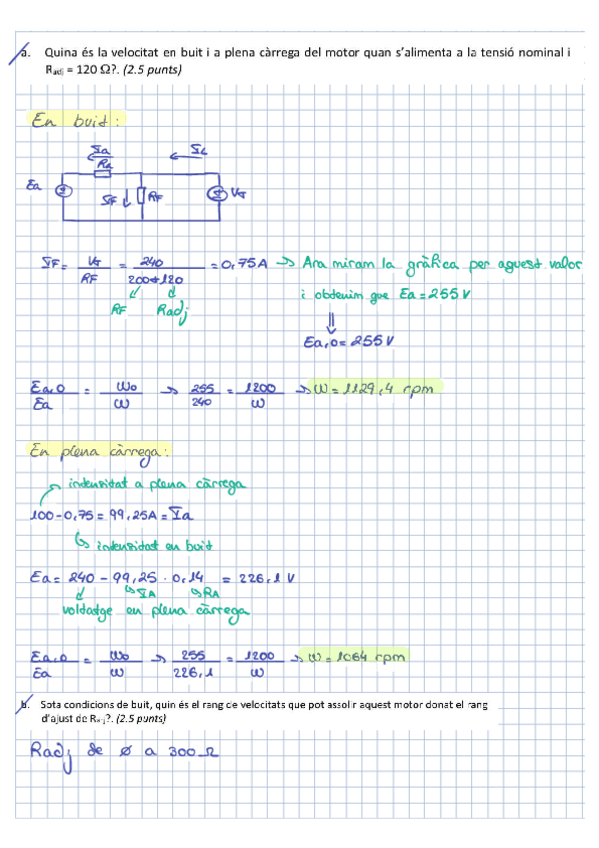 a. Quina és la velocitat en buit i a plena càrrega del motor quan s'alimenta a la tensió nominal i
Radj = 120 Ω?. (2.5 punts)
En buid:
Ia
Ra
IL
Ea
IF
RF
VT
IF = VT / RF = 240 / 200+120 = 0,75A → Ara miram la gràfica per aquest valor
RF Radj
i obtenim que Ea = 255 V
⇓
Ea,0 = 255 V
Ea,0 / Ea = W0 / W → 255 / 240 = 1200 / W → W = 1129,4 rpm
En plena càrrega:
indensitat a plena càrrega
100 - 0,75 = 99,25A = Ia
indensitat en buit
Ea = 240 - 99,25 · 0,14 = 226,1 V
IA RA
voldatge en plena càrrega
Ea,0 / Ea = W0 / W → 255 / 226,1 = 1200 / W → W = 1064 rpm
b. Sota condicions de buit, quin és el rang de velocitats que pot assolir aquest motor donat el rang
d'ajust de Radj?. (2.5 punts)
Radj de ø a 300 Ω